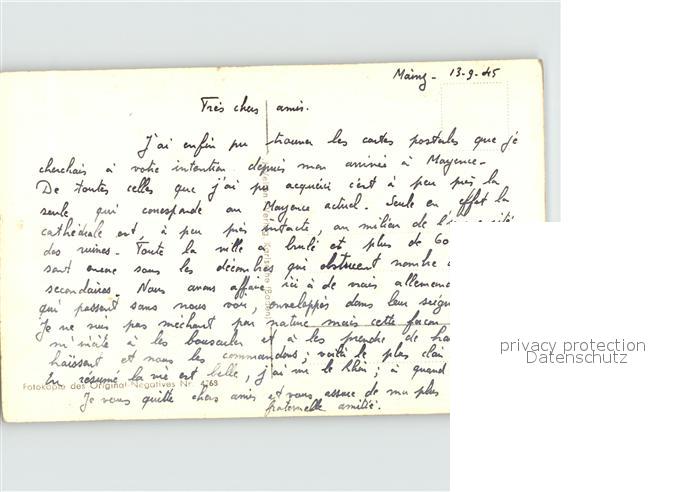 Mainz - 13-9-45
Très chers amis.
J'ai enfin pu trouver les cartes postales que je
cherchais à votre intention depuis mon arrivée à Mayence -
De toutes celles que j'ai pu acquérir c'est à peu près la
seule qui corresponde au Mayence actuel. Seule en effet la
cathédrale est, à peu près intacte, au milieu de
des ruines - Toute la ville a brulé et plus de 60
sont encore sous les décombres qui obstruent nombre
secondaires. Nous avons affaire ici à de vrais allemands
qui passent sans nous voir, enveloppés dans leur
Je ne suis pas méchant par nature mais cette façon
m'incite à les bousculer et à les prendre de
haïssent et nous les commandons; voilà le plus clair
En résumé la vie est belle, j'ai vu le Rhin; à quand
Fotokopie des Original-Negatives Nr. 4268
Je vous quitte chers amis et vous assure de ma plus
fraternelle amitié.
privacy protection
Datenschutz